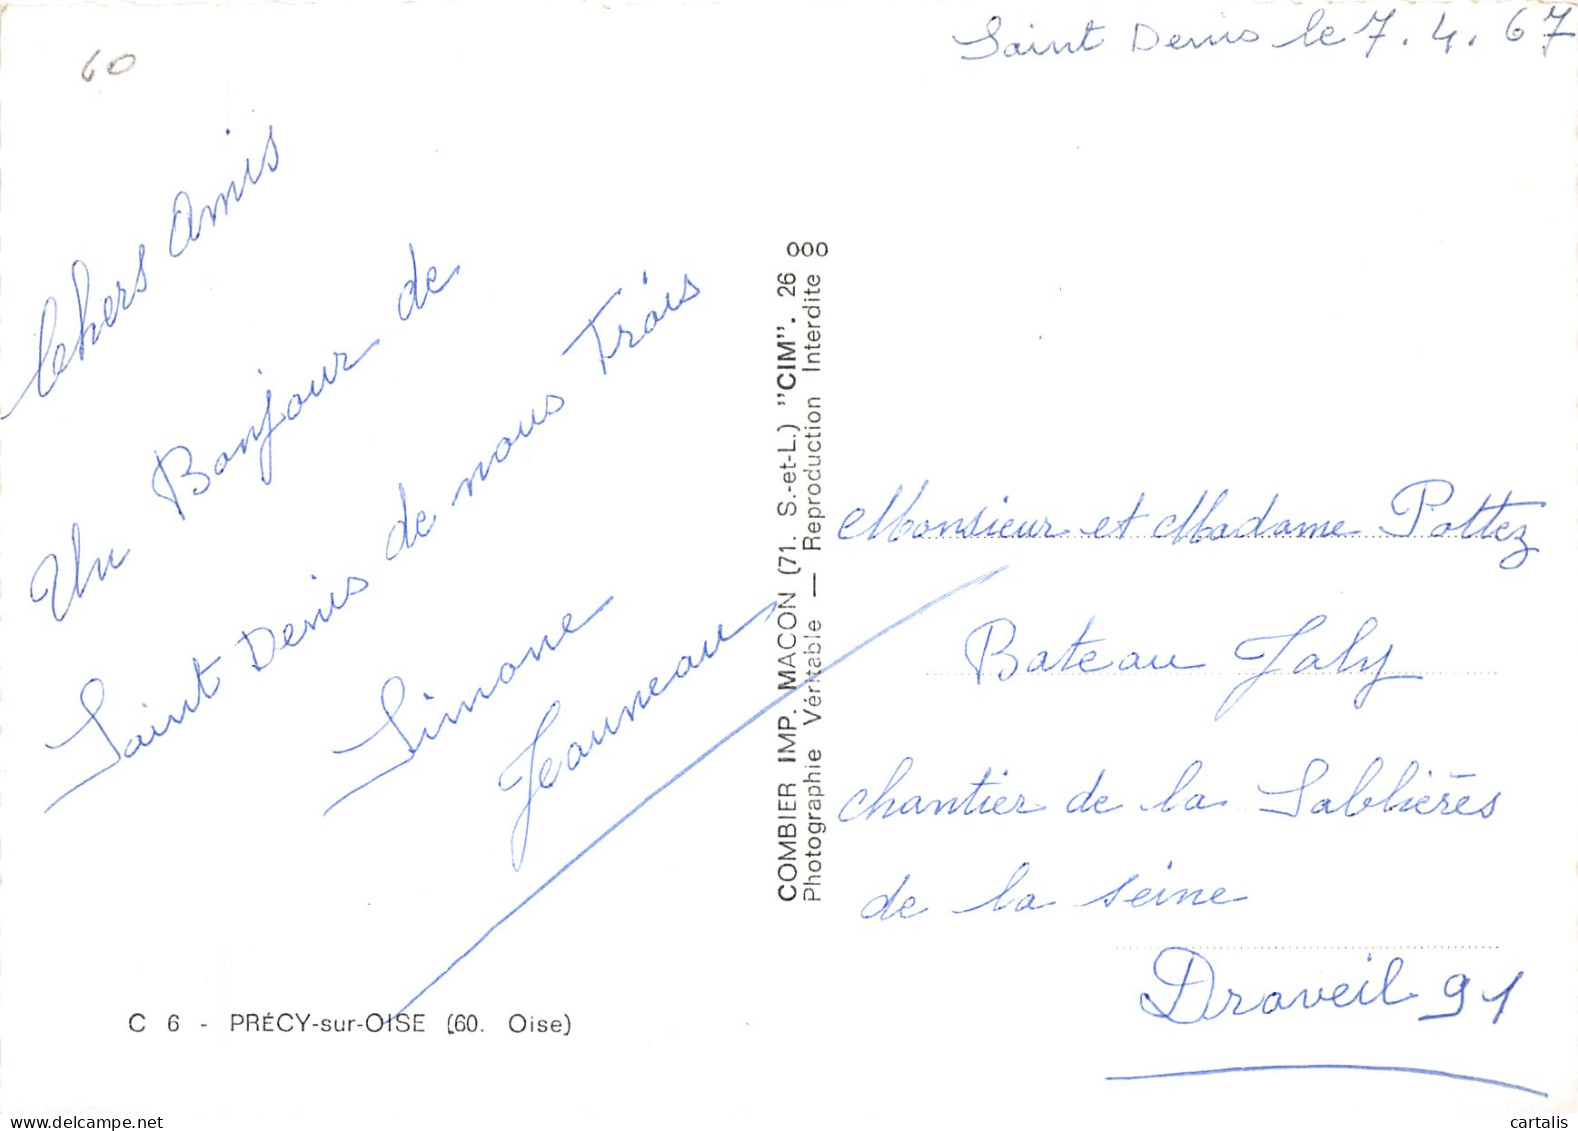 60
Saint Denis le 7.4.67
Chers Amis
Un Bonjour de
Saint Denis de nous Trois
Simone
Jeauneau
COMBIER IMP. MACON (71. S.-et-L.) "CIM". 26 000
Photographie Véritable — Reproduction Interdite
Monsieur et Madame Pottez
Bateau Jaly
chantier de la Sablières
de la seine
Draveil 91
C 6 - PRÉCY-sur-OISE (60. Oise)
cartalis